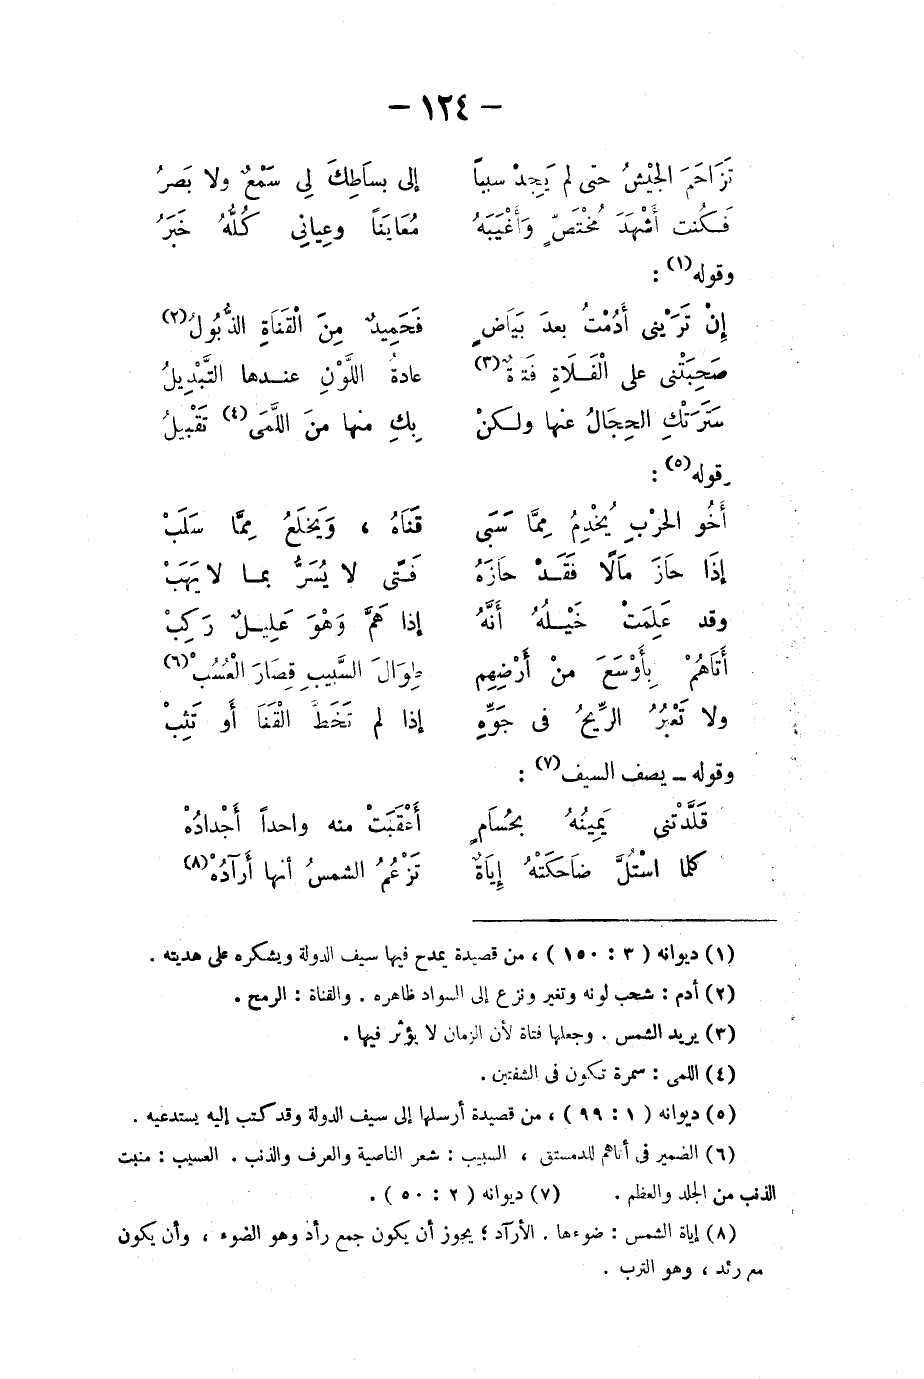 — ١٢٤ —
تَزَاحَمَ الجَيْشُ حتى لم يَجِدْ سبباً إلى بساَطِكَ لِى سَمْعٌ ولا بَصَرُ
فَكُنت أَشْهَدَ مُخْتَصٍّ وَأَغْيَبَهُ مُعَايَناً وعِيانِى كُلُّهُ خَبَرُ
وقوله(١) :
إِنْ تَرَيْنى أَدُمْتُ بعدَ بَيَاضٍ فَحَمِيدٌ مِنَ الْقَنَاةِ الذُّبُولُ(٢)
صَحِبَتْنى على الْفَلَاةِ فَتَاةٌ(٣) عادةُ اللَّوْنِ عندها التَّبْدِيلُ
سَتَرَتْكِ الحِجَالُ عنها ولكنْ بِكِ منها منَ اللَّمَى(٤) تَقْبِيلُ
وقوله(٥) :
أَخُو الحَرْبِ يُخْدِمُ مِمَّا سَبَى قَنَاهُ ، وَيَخلَعُ مِمَّا سَلَبْ
إِذَا حَازَ مَالًا فَقَدْ حَازَهُ فَتًى لا يُسَرُّ بما لا يَهَبْ
وقد عَلِمَتْ خَيْلُهُ أَنَّهُ إذا هَمَّ وَهْوَ عَلِيلٌ رَكِبْ
أَتَاهُمْ بِأَوْسَعَ منْ أَرْضِهِم طِوَالَ السَّبِيبِ قِصَارَ الْعُسُبْ(٦)
ولا تَعْبُرُ الرِّيحُ فى جَوِّهِ إذا لم تَخَطَّ الْقَنَا أو تَثِبْ
وقوله ــ يصف السيف(٧) :
قَلَّدَتْنى يَمِينُهُ بحُسَامٍ أَعْقَبَتْ منه واحداً أَجْدَادُهْ
كلما اسْتُلَّ ضَاحَكَتْهُ إِيَاةٌ تَزْعُمُ الشمسُ أنها أَرآدُهْ(٨)
(١) ديوانه ( ٣ : ١٥٠ ) ، من قصيدة يمدح فيها سيف الدولة ويشكره على هديته .
(٢) أدم : شحب لونه وتغير ونزع إلى السواد ظاهره . والقناة : الرمح .
(٣) يريد الشمس . وجعلها فتاة لأن الزمان لا يؤثر فيها .
(٤) اللمى : سمرة تكون فى الشفتين .
(٥) ديوانه ( ١ : ٩٩ ) ، من قصيدة أرسلها إلى سيف الدولة وقد كتب إليه يستدعيه .
(٦) الضمير فى أتاهم للدمستق ، السبيب : شعر الناصية والعرف والذنب . العسيب : منبت
الذنب من الجلد والعظم . (٧) ديوانه ( ٢ : ٥٠ ) .
(٨) إياة الشمس : ضوءها . الأرآد ؛ يجوز أن يكون جمع رأد وهو الضوء ، وأن يكون
مع رئد ، وهو الترب .